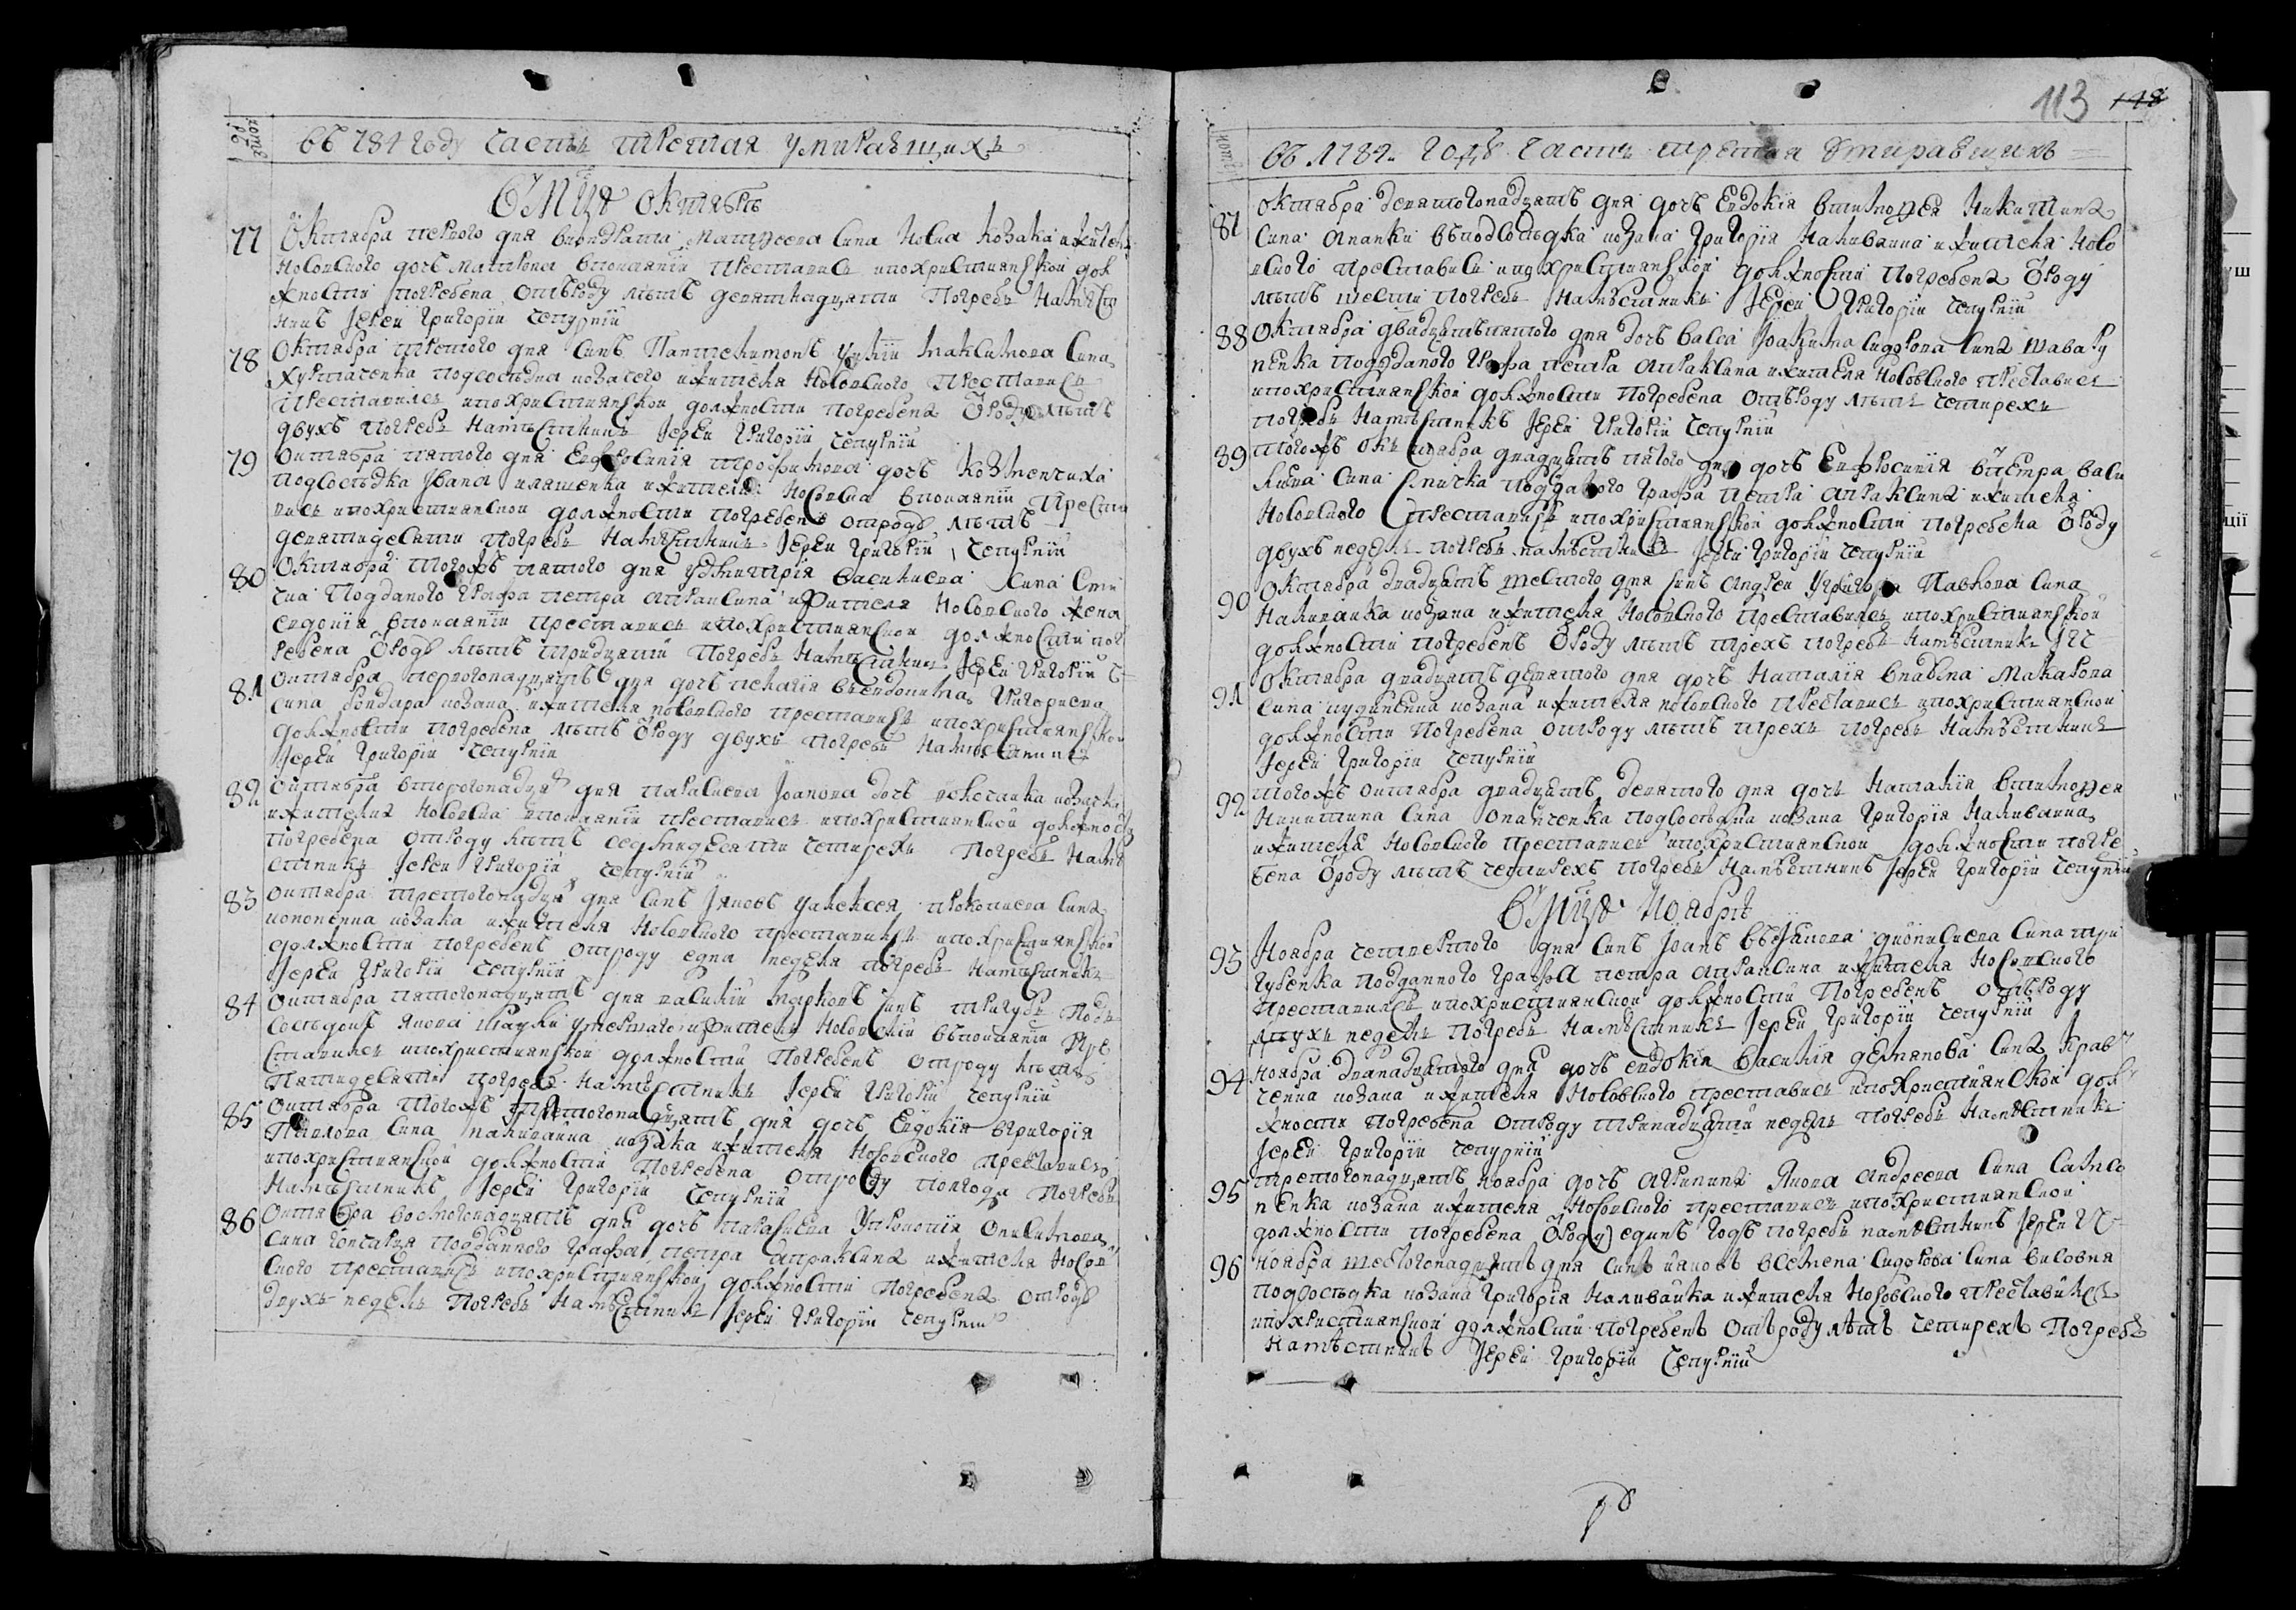 113 148
въ 1781 году часть третая умиравшихъ
Вмцѣ октябрѣ
77 Октабра первого дня Матѳеева сина Носа козака и жител
носовского дочь Матрона впокаянии преставис и похристиянской дол
жности погребена отъроду лѣтъ девятнадцати погребъ намѣст
никъ Іерей Григорій Чепурнїй
78 Октабра третого дня синъ Пантелимонъ Максимова сина
подсосѣдка козачего и жителя носовского преставись
преставилсъ и похристиянской должности погребенъ ѿроду лѣтъ
двухъ погребъ намѣстникъ Іерей Григорій Чепурнїй
79 Октабра пятого дня Евфросинія Трофимова дочь
подсосѣдка Івана и жителя носовска впокаянии преста
вись и похристиянской должности погребена отроду лѣтъ
девятидесяти погребъ намѣстникъ Іерей Григорій Чепурнїй
80 Октабра тогожъ пятого дня у Дмитрія Василиева сина
подданого графа Петра Апраксина и жителя носовского жена
Евдокія впокаянїи преставись и похристиянской должности пог
ребена ѿроду лѣтъ тридцяти погребъ намѣстникъ Іерей Григорїй Ч
81 Октабра первогонадцять дня дочь Пелагія вевдокима Григориева
сина бондара козака и жителя носовского преставись и похристиянской
должности погребена лѣтъ ѿроду двухъ погребъ намѣстникъ
Іерей Григорїй Чепурнїй
82 Октабра второгонадця дня Параскева Іоанова дочь козачка
и жителка носовска впокаянїи преставись и похристиянской должности
погребена отроду лѣтъ седмидесяти чотирехъ погребъ намѣ
стникъ Іерей Григорїй Чепурнїй
83 Октабра третогонадця дня синъ Іяковъ у Алексея Прокопиева сина
кононенка козака и жителя носовского преставилсъ и похристиянской
должности погребенъ отроду една неделя погребъ намѣстникъ
Іерей Григорїй Чепурнїй
84 Октабра пятогонадцять дня Василій Марковъ синъ подъ
сосѣдокъ Якова умершаго и жителъ носовскїй въпокаянїи пре
ставилсъ и похристиянской должности погребенъ отроду лѣтъ
пятидесяти погребъ намѣстникъ Іерей Григорїй Чепурнїй
85 Октабра тогожъ пятогонадцять дня дочь Евдокія вГригорія
Павлова сина Наливайка козака и жителя носовского преставись
и похристиянской должности погребена отроду полгода погребъ
намѣстникъ Іерей Григорїй Чепурнїй
86 Октабра восмогонадцять дня дочь Параскева у Прокопія Онисимова
сина гончарця подданного графа Петра Апраксина и жителя носов
ского преставись и похристиянской должности погребена отроду
двухъ неделъ погребъ намѣстникъ Іерей Григорїй Чепурнїй
въ 1781 годѣ часть третая умиравшихъ
87 Октабра девятогонадцять дня дочь Евдокія втимоѳея Никитина
сина Опанки въподсосѣдка козака Григорія Наливайка и жителя носо
вского преставись и похристиянской должности погребена ѿроду
лѣтъ шести погребъ намѣстникъ Іерей Григорїй Чепурнїй
88 Октабра двадцятьпятого дня дочь Васса Іоакима Сидорова сина Шавару
пенка подданого графа Петра Апраксина и жителя носовского преставись
и похристиянской должности погребена отъроду лѣтъ четирехъ
погребъ намѣстникъ Іерей Григорїй Чепурнїй
89 Тогожъ октабра двадцять пятого дня дочь Евфросинія въПетра Васи
лиева сина Спичка подданого графа Петра Апраксина и жителя
носовского преставись и похристиянской должности погребена ѿроду
двухъ неделъ погребъ намѣстникъ Іерей Григорїй Чепурнїй
90 Октабра двадцять шестого дня синъ Андрей у Григора Павлова сина
Наливайка козака и жителя носовского преставилсъ и похристиянской
должности погребенъ ѿроду лѣтъ трехъ погребъ намѣстникъ ІГЧ
91 Октабра двадцять девятого дня дочь Наталія вПавла Макарова
сина козака и жителя носовского преставись и похристиянской
должности погребена отроду лѣтъ трехъ погребъ намѣстникъ
Іерей Григорїй Чепурнїй
92 Тогожъ октабра двадцять девятого дня дочь Наталія втимоѳея
Никитина сина Опанченка подсосѣдка козака Григорія Наливайка
и жителя носовского преставись и похристиянской должности погре
бена ѿроду лѣтъ четирехъ погребъ намѣстникъ Іерей Григорїй Чепурнїй
Вмцѣ ноябрѣ
93 Ноября четвертого дня синъ Іоанъ Діонисиева сина три
губенка подданного графа Петра Апраксина и жителя носовского
преставилсъ и похристиянской должности погребенъ отъроду
двухъ неделъ погребъ намѣстникъ Іерей Григорїй Чепурнїй
94 Ноября дванадцятого дня дочь Евдокія Василія Демянова сина Крав
ченка козака и жителя носовского преставись и похристиянской дол
жности погребена отроду тринадцяти неделъ погребъ намѣстникъ
Іерей Григорїй Чепурнїй
95 Третогонадцять ноября дочь Агрипина Якова Андреева сина Само
пенка козака и жителя носовского преставись и похристиянской
должности погребена ѿроду единъ годъ погребъ намѣстникъ Іерей ГЧ
96 Ноября шестогонадцять дня синъ Іяковъ всемена Сидорова сина
подсосѣдка козака Григорія Наливайка и жителя носовского преставилсъ
и похристиянской должности погребенъ отъроду лѣтъ четирехъ погребъ
намѣстникъ Іерей Григорїй Чепурнїй